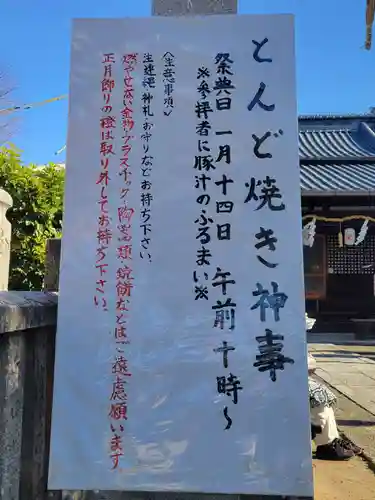 とんど焼き神事
祭典日 一月十四日 午前十時~
※参拝者に豚汁のふるまい※
《注意事項》
注連縄、神札、お守りなどお持ち下さい。
燃やせない金物、プラスチック、陶器類、鏡餅などはご遠慮願います
正月飾りの橙は取り外しお持ち下さい。